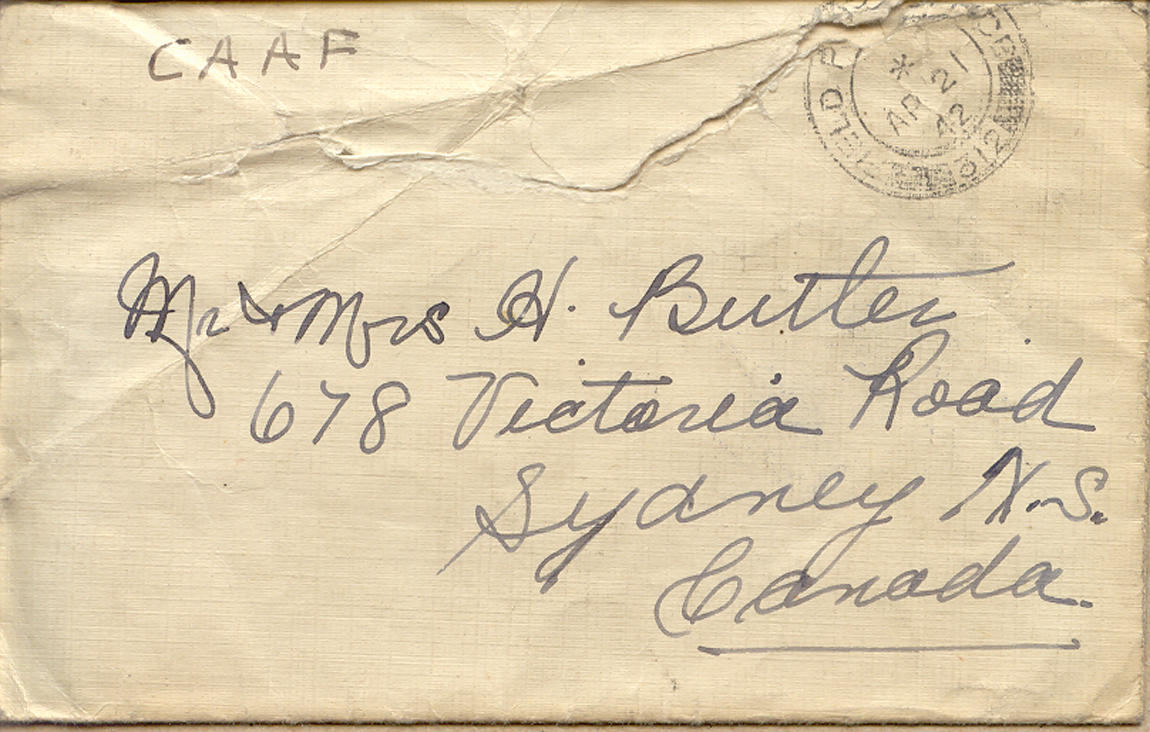 CAAF
FIELD P
* AP 21 42
312
Mr & Mrs H. Butler
678 Victoria Road
Sydney N.S.
Canada.